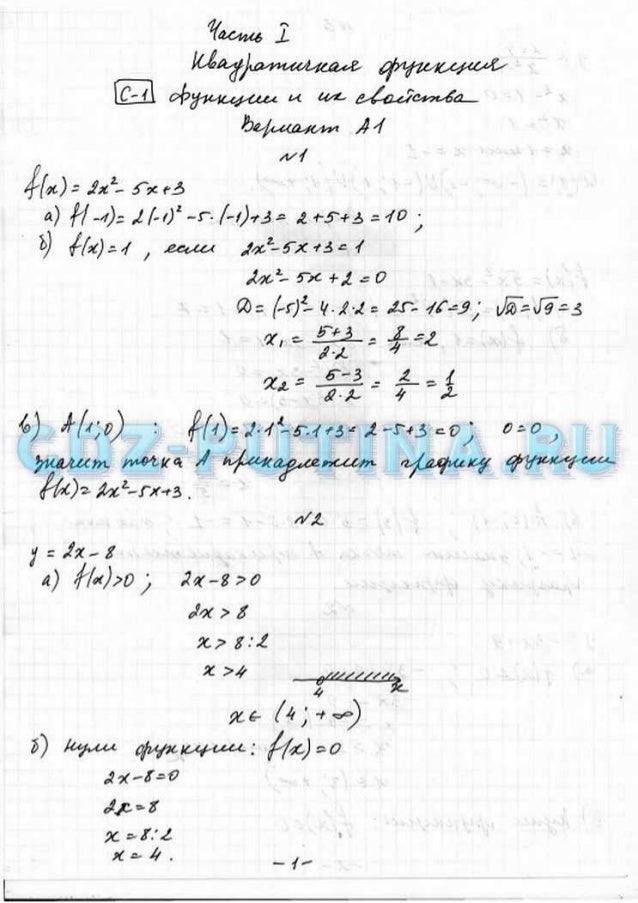 Часть I
Квадратичная функция
С-1 Функции и их свойства
Вариант А1
№1
f(x)=2x²-5x+3
а) f(-1)=2(-1)²-5·(-1)+3=2+5+3=10;
б) f(x)=1, если 2x²-5x+3=1
2x²-5x+2=0
D=(-5)²-4·2·2=25-16=9; √D=√9=3
x₁=(5+3)/(2·2)=8/4=2
x₂=(5-3)/(2·2)=2/4=1/2
в) А(1;0) : f(1)=2·1²-5·1+3=2-5+3=0; 0=0,
GDZ-PUTINA.RU
значит точка А принадлежит графику функции
f(x)=2x²-5x+3.
№2
y=2x-8
а) f(x)>0; 2x-8>0
2x>8
x>8:2
x>4
4 x
x∈(4;+∞)
б) нули функции: f(x)=0
2x-8=0
2x=8
x=8:2
x=4.
-1-